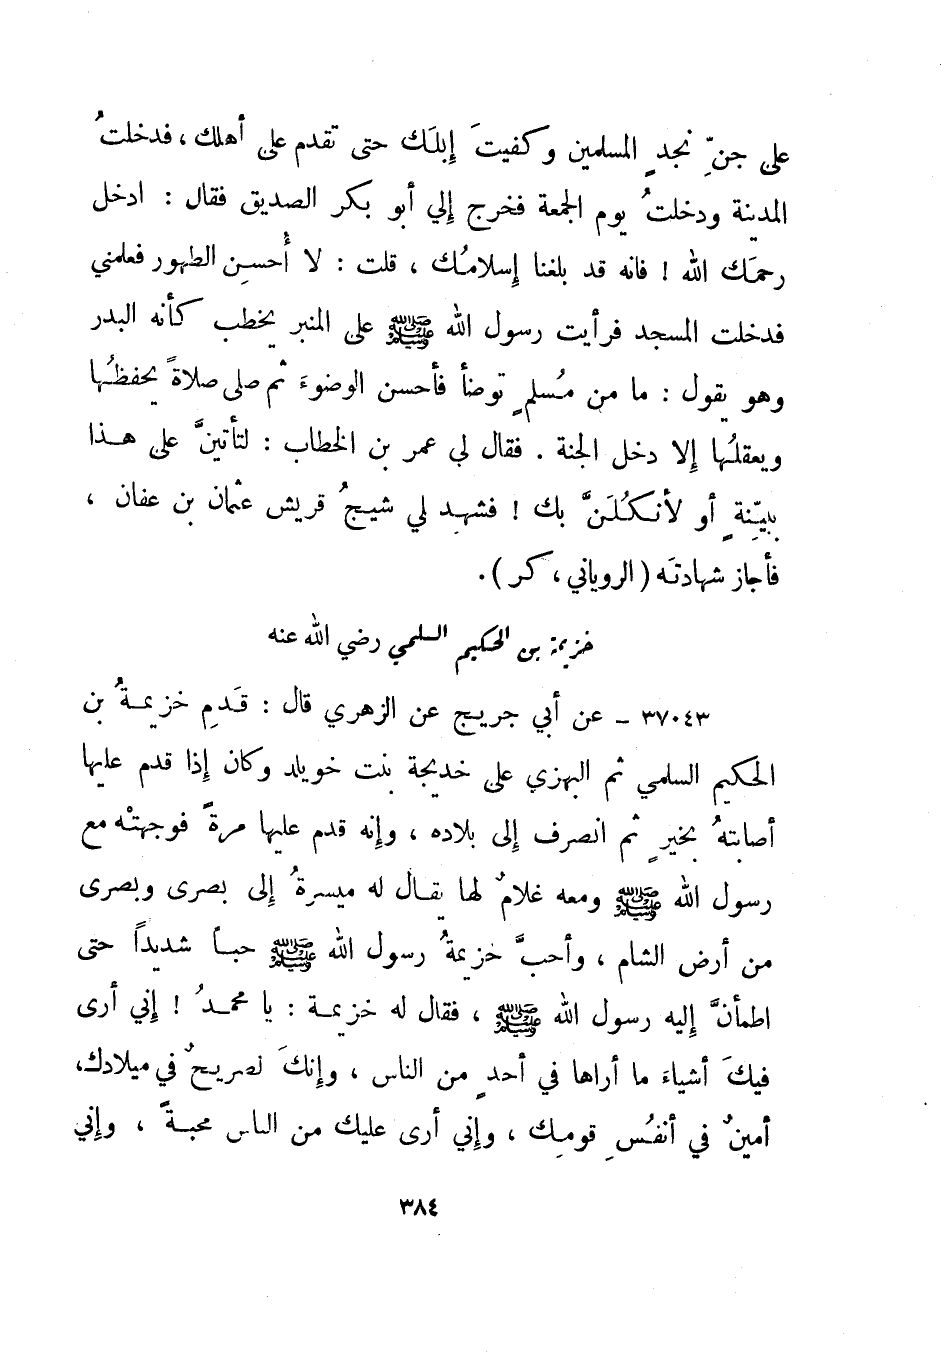 على جنِّ نجدٍ المسلمين وكفيتَ إبلَك حتى تقدم على أهلك ، فدخلتُ
المدينة ودخلتُ يوم الجمعة فخرج إلي أبو بكر الصديق فقال : ادخل
رحمَك الله ! فانه قد بلغنا إسلامُك ، قلت : لا أُحسن الطهور فعلمني
فدخلت المسجد فرأيت رسول الله ﷺ على المنبر يخطب كأنه البدر
وهو يقول : ما من مُسلمٍ توضأ فأحسن الوضوءَ ثم صلى صلاةً يحفظُها
ويعقلُها إلا دخل الجنة . فقال لي عمر بن الخطاب : لتأتينَّ على هذا
ببيّنةٍ أو لأنكُلَنَّ بك ! فشهد لي شيخُ قريش عثمان بن عفان ،
فأجاز شهادتَه ( الروياني ، كر ) .
خزيمة بن الحكيم السلمي رضي الله عنه
٣٧٠٤٣ – عن أبي جريج عن الزهري قال : قَدم خزيمةُ بن
الحكيم السلمي ثم البهزي على خديجة بنت خويلد وكان إذا قدم عليها
أصابتهُ بخيرٍ ثم انصرف إلى بلاده ، وإنه قدم عليها مرةً فوجهتْه مع
رسول الله ﷺ ومعه غلامٌ لها يقال له ميسرةُ إلى بصرى وبصرى
من أرض الشام ، وأحبَّ خزيمةُ رسول الله ﷺ حباً شديداً حتى
اطمأنَّ إليه رسول الله ﷺ ، فقال له خزيمة : يا محمدُ ! إني أرى
فيكَ أشياءَ ما أراها في أحدٍ من الناس ، وإنكَ لصريحٌ في ميلادك،
أمينٌ في أنفُسِ قومِك ، وإني أرى عليك من الناس محبةً ، وإني
٣٨٤